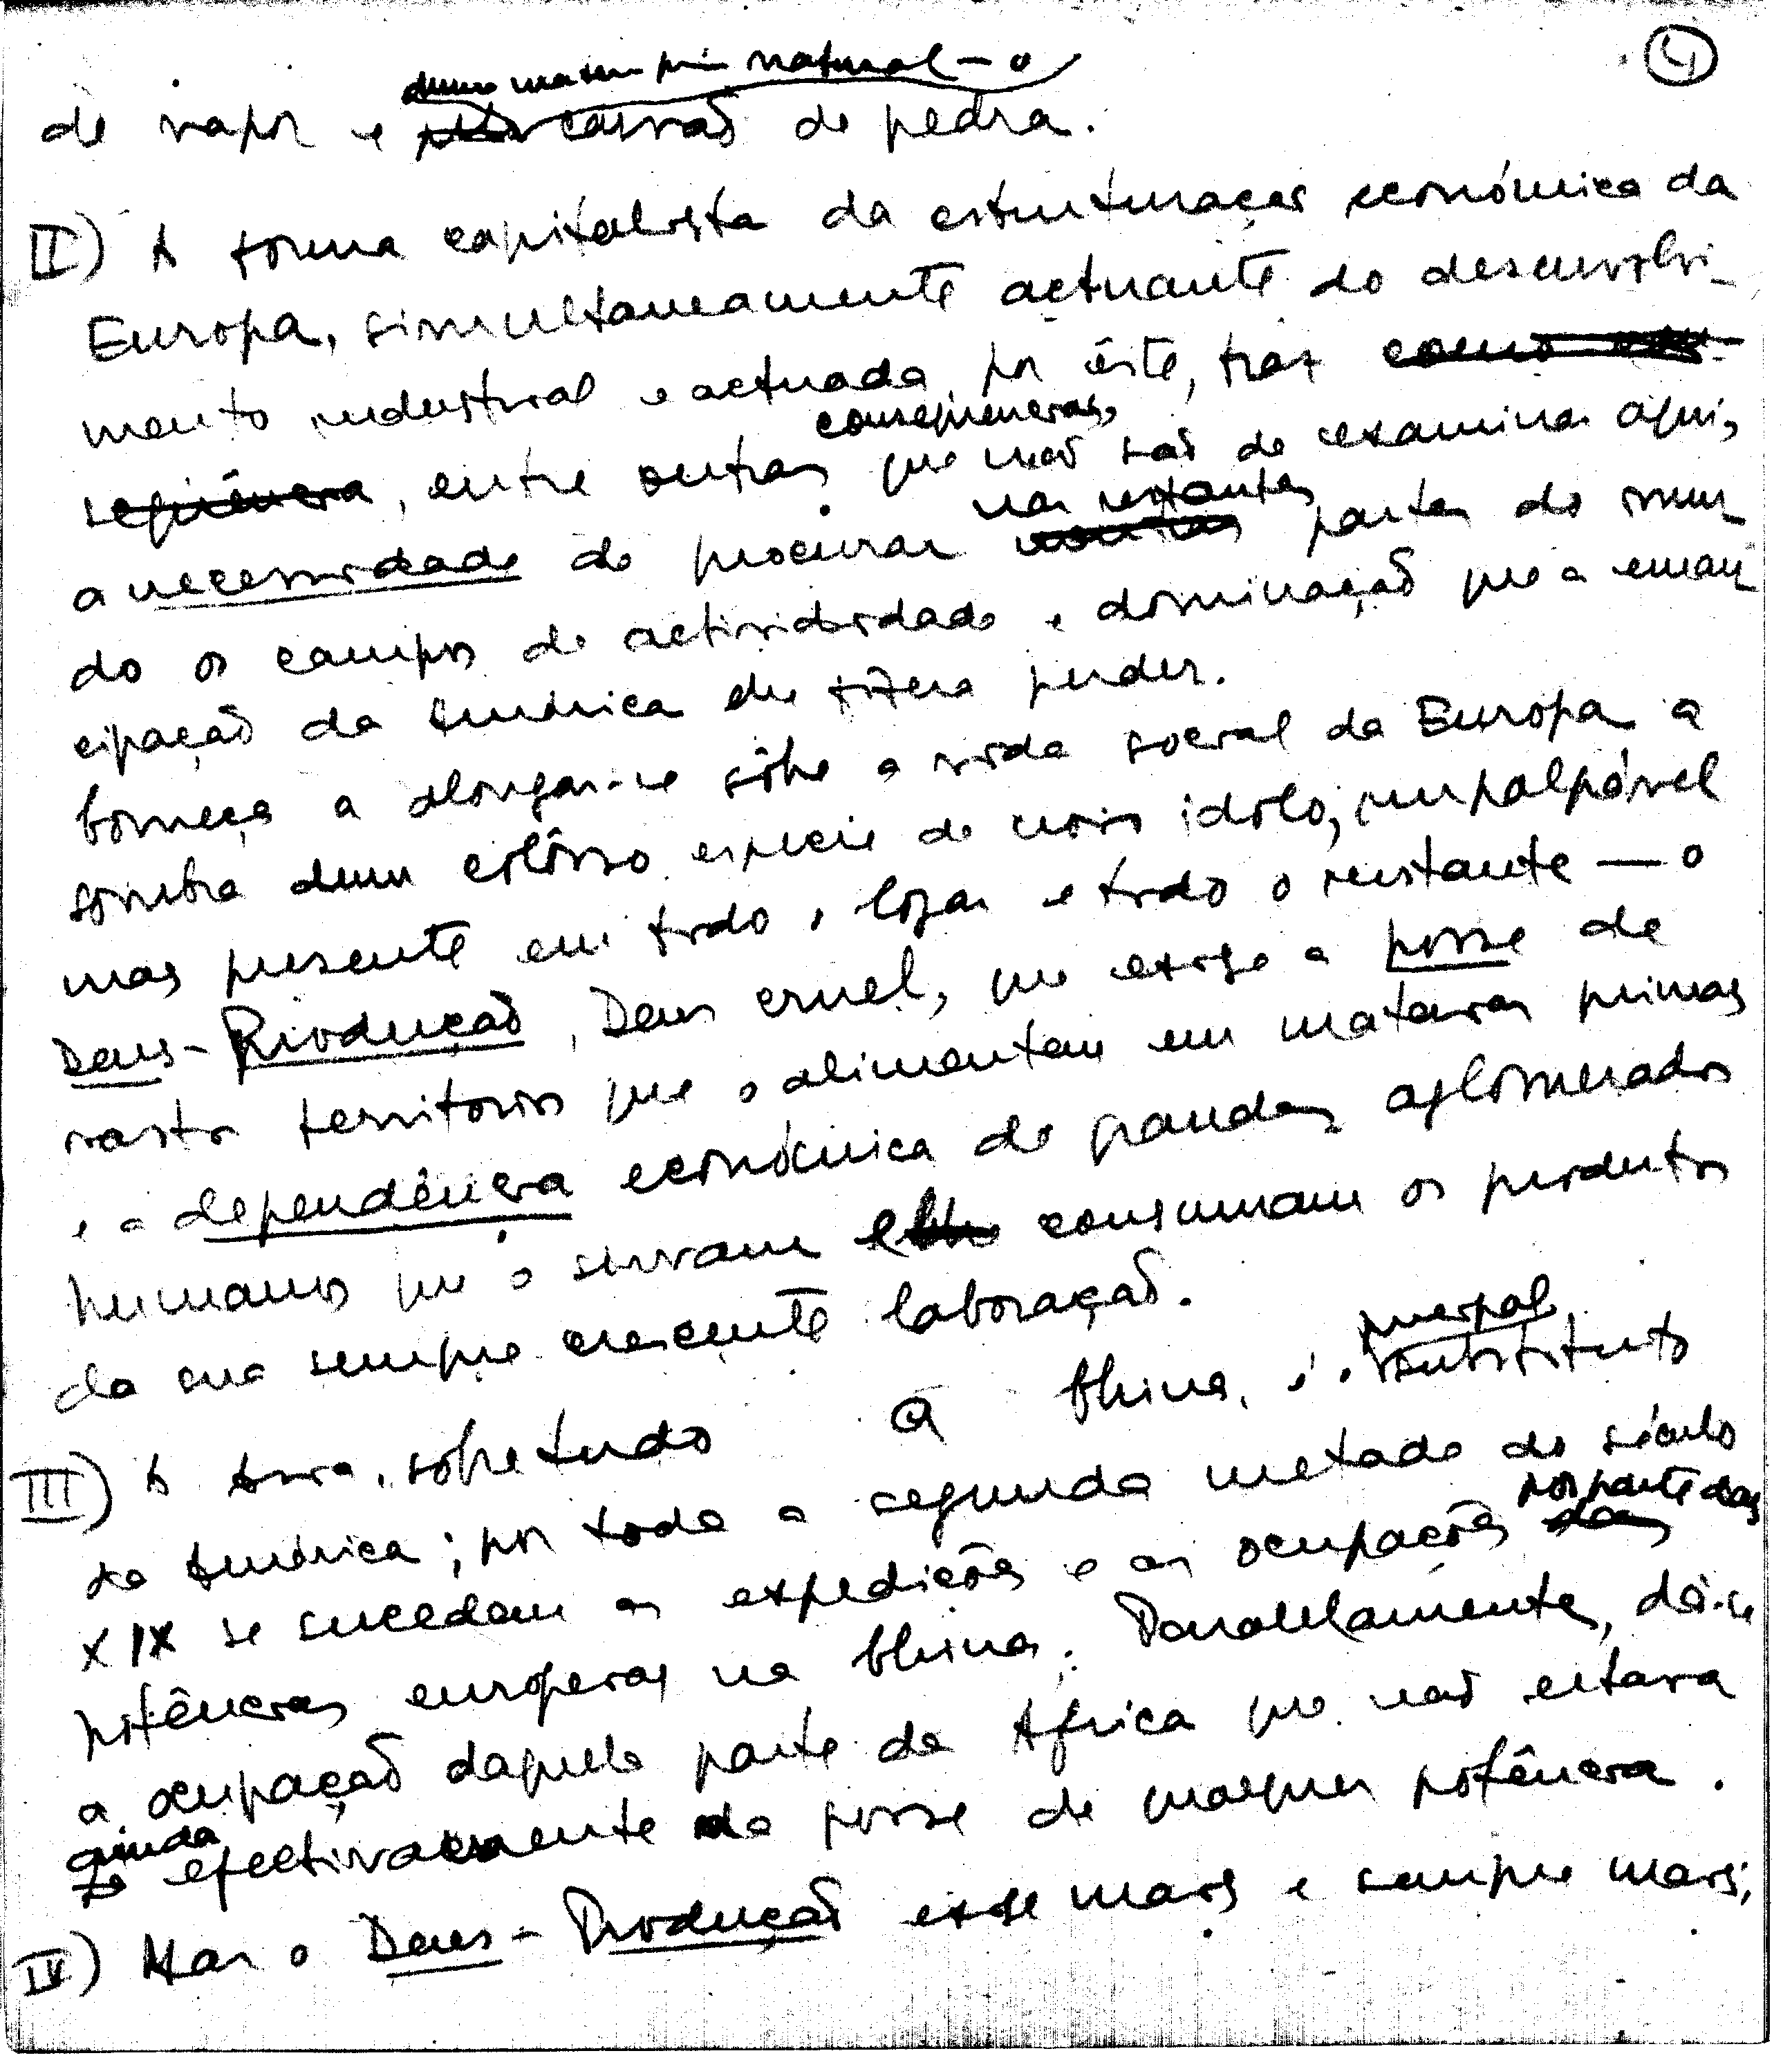 4
duma matéria prima natural — o
de vapor e carvão de pedra.
II) A forma capitalista da estruturação económica da
Europa, simultaneamente actuante do desenvolvi-
mento industrial e actuada por êste, traz como con-
consequências,
seqüência, entre outras que não são de examinar aqui,
nas restantes
a necessidade de procurar noutras partes do mun-
do os campos de actividade e dominação que a eman-
cipação da América lhe fizera perder.
Começa a alongar-se sôbre a vida social da Europa a
sombra dum colosso, espécie de novo idolo, impalpável
mas presente em todo o lugar e todo o instante — o
Deus-Producção, Deus cruel, que exige a posse de
vastos territorios que o alimentam em materias primas
e a dependência económica de grandes aglomerados
humanos que o sirvam e lhe consumam os produtos
da sua sempre crescente laboração.
principal
III) A Asia, sobretudo a China, é o substituto
da América; por toda a segunda metade do século
por parte das
XIX se sucedem as expedições e as ocupações das
potências europeias na China. Paralelamente, dá-se
a ocupação daquela parte da Africa que não estava
ainda
efectivamente na posse de qualquer potência.
IV) Mas o Deus-Produção exige mais e sempre mais;